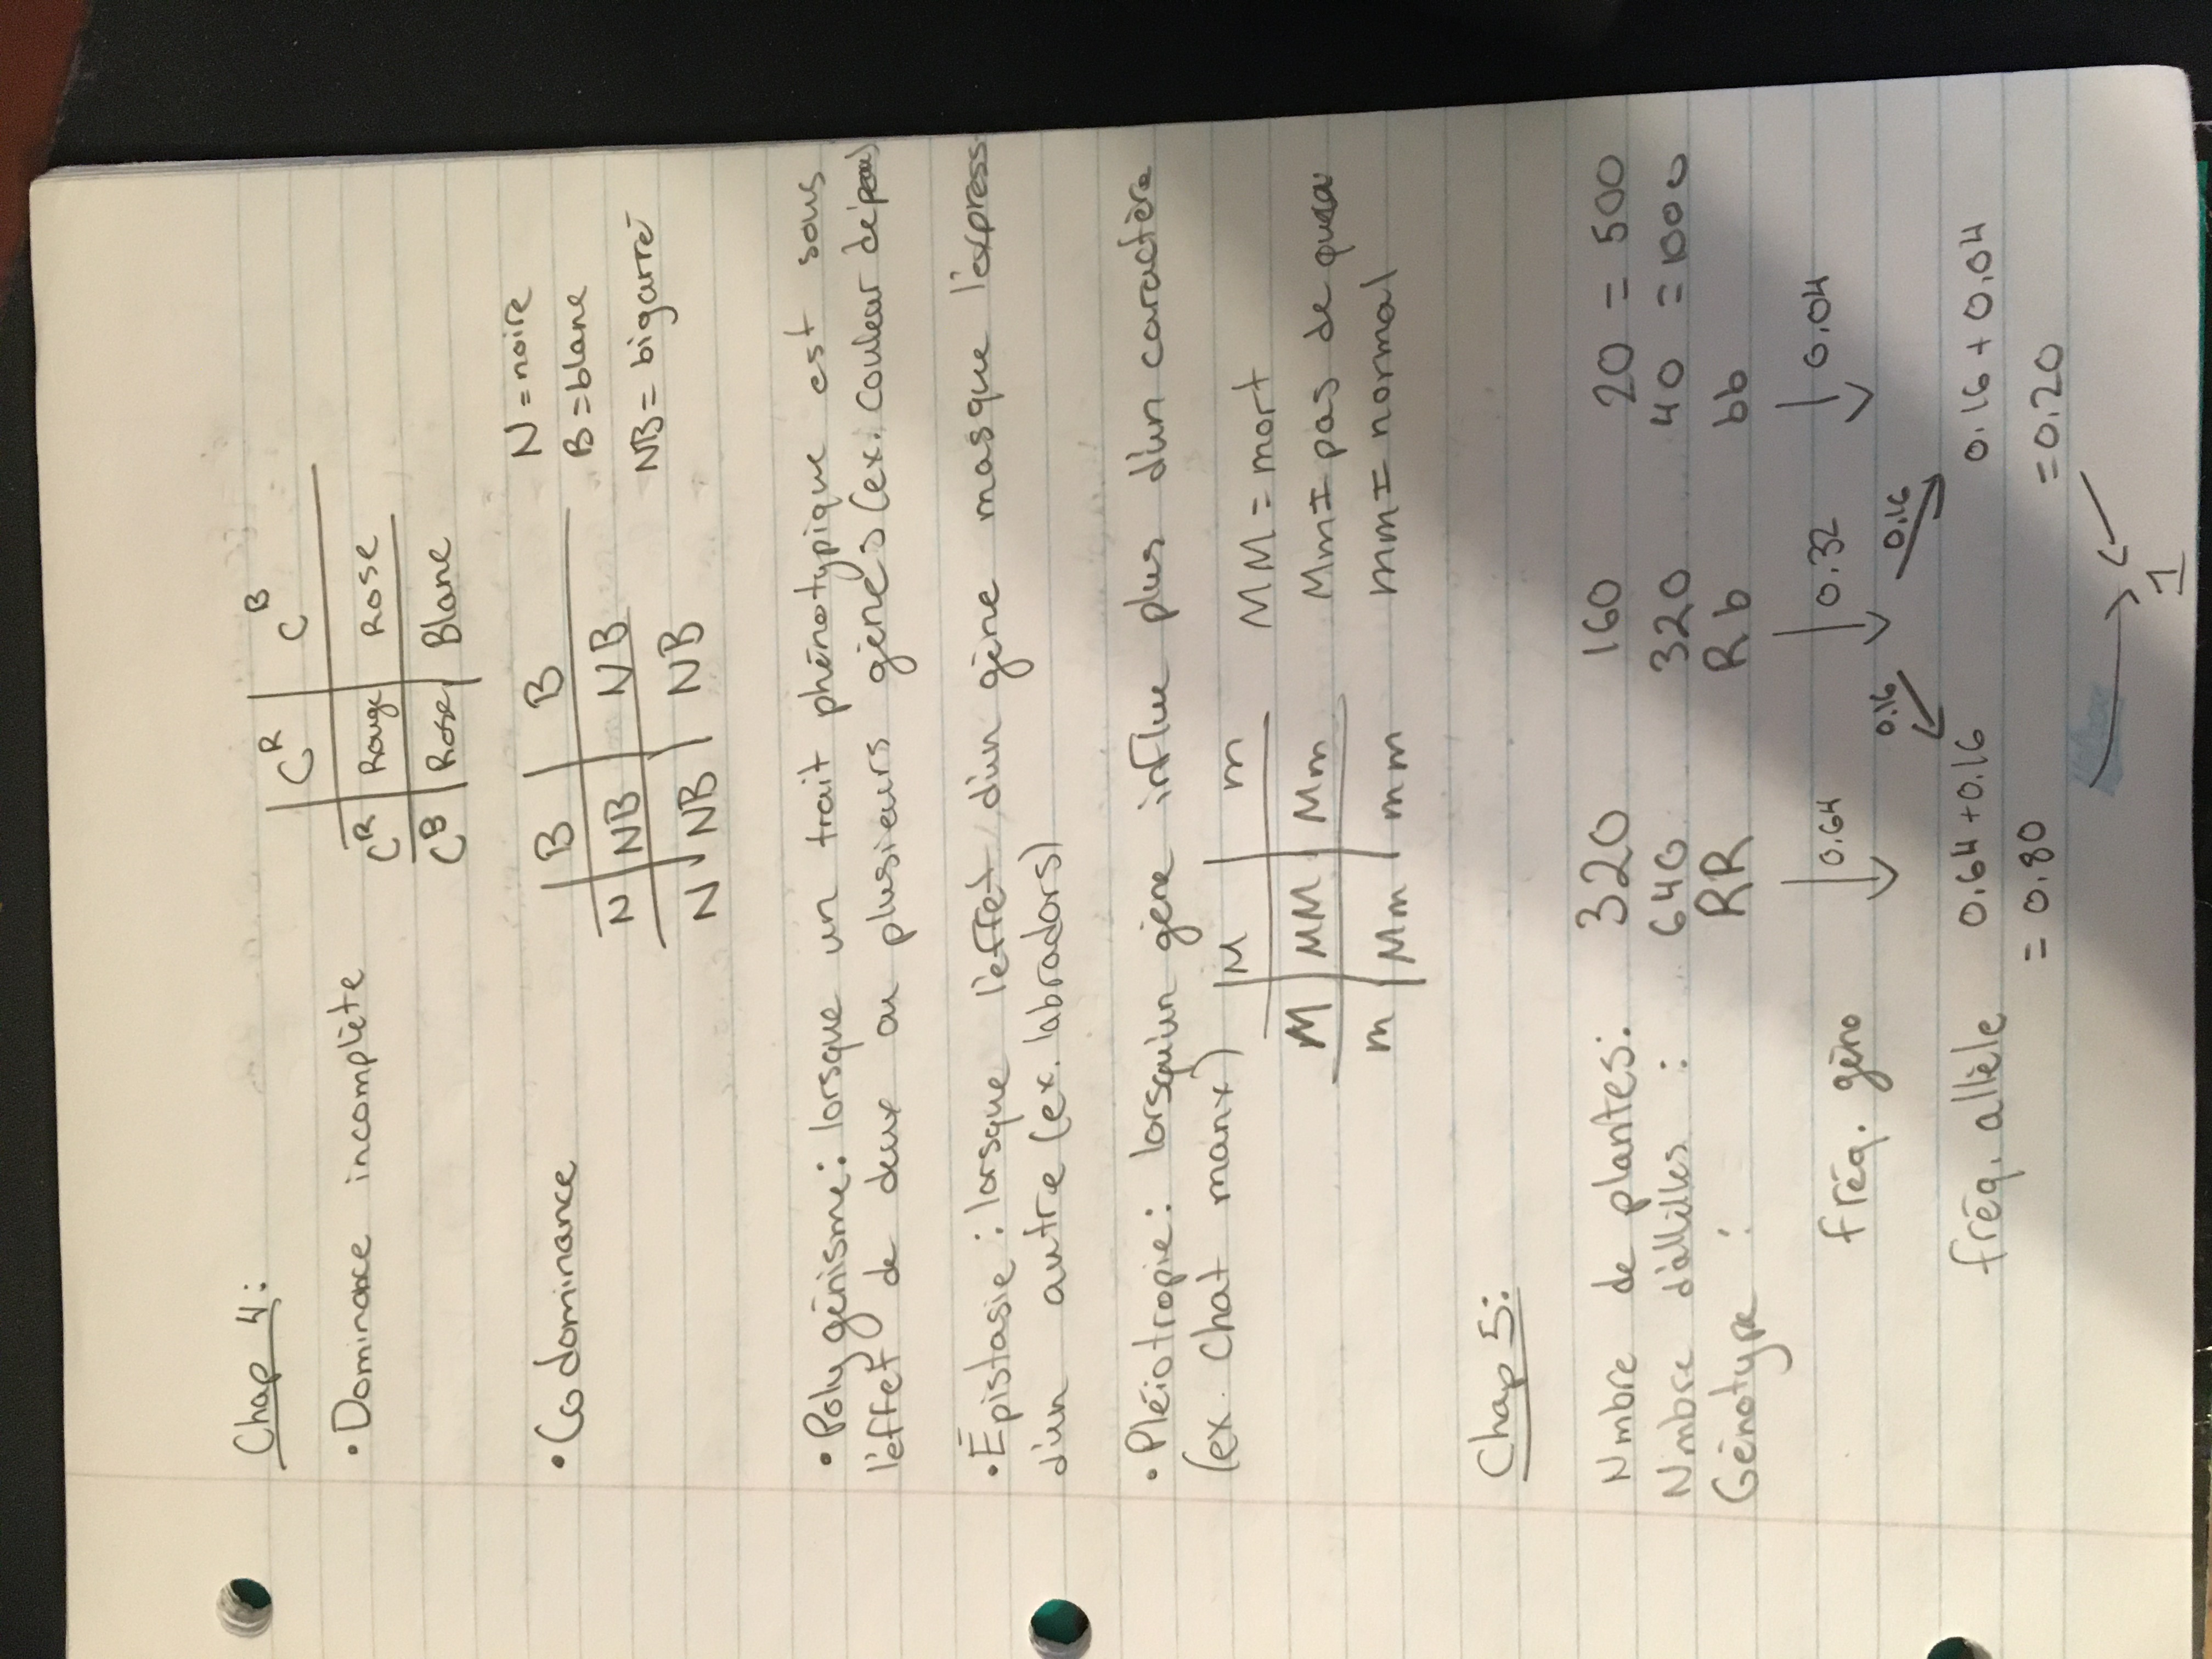 Chap 4:
• Dominance incomplète
C^R C^B
C^R Rouge Rose
C^B Rose Blanc
• Codominance
B B N = noire
N NB NB B = blanc
N NB NB NB = bigarré
• Polygénisme: lorsque un trait phénotypique est sous
l'effet de deux ou plusieurs gènes (ex. couleur de peau)
• Épistasie: lorsque l'effet d'un gène masque l'express
d'un autre (ex. labradors)
• Pléiotropie: lorsqu'un gène influe plus d'un caractère
(ex. Chat manx)
M m MM = mort
M MM Mm Mm = pas de queue
m Mm mm mm = normal
Chap 5:
Nmbre de plantes: 320 160 20 = 500
Nmbre d'allèles : 640 320 40 = 1000
Génotype : RR Rb bb
fréq. géno 0.64 0.32 0.04
0.16 0.16
fréq. allèle 0.64 + 0.16 0.16 + 0.04
= 0.80 = 0.20
1